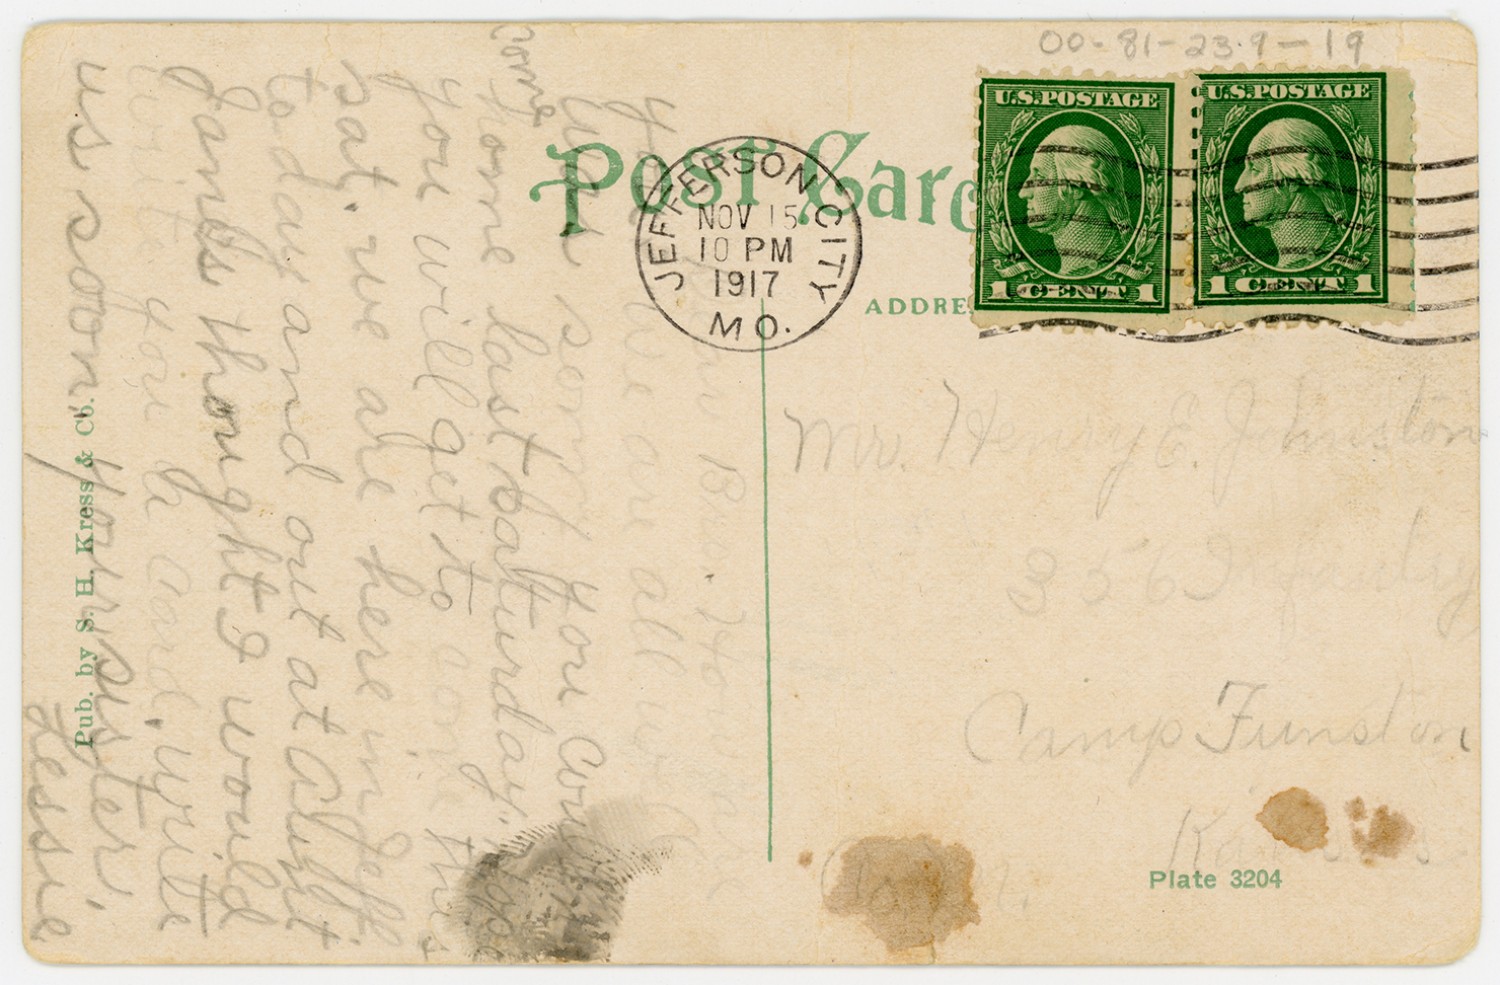 00-81-23.9-19
U.S.POSTAGE U.S.POSTAGE
1 CENT 1 1 CENT 1
POST CARD
JEFFERSON CITY
NOV 15
10 PM
1917
MO.
ADDRE
Mr. Henry E. Johnston
356 Infantry
Camp Funston
Kansas
Plate 3204
Pub. by S. H. Kress & Co.
Dear Bro. How are
you we are all well
Was sorry you could
come home last Saturday. hope
you will get to come this
Sat. we are here in Jeff
today and out at Aunt
Janes thought I would
write you a card. write
us soon, your sister,
Jessie